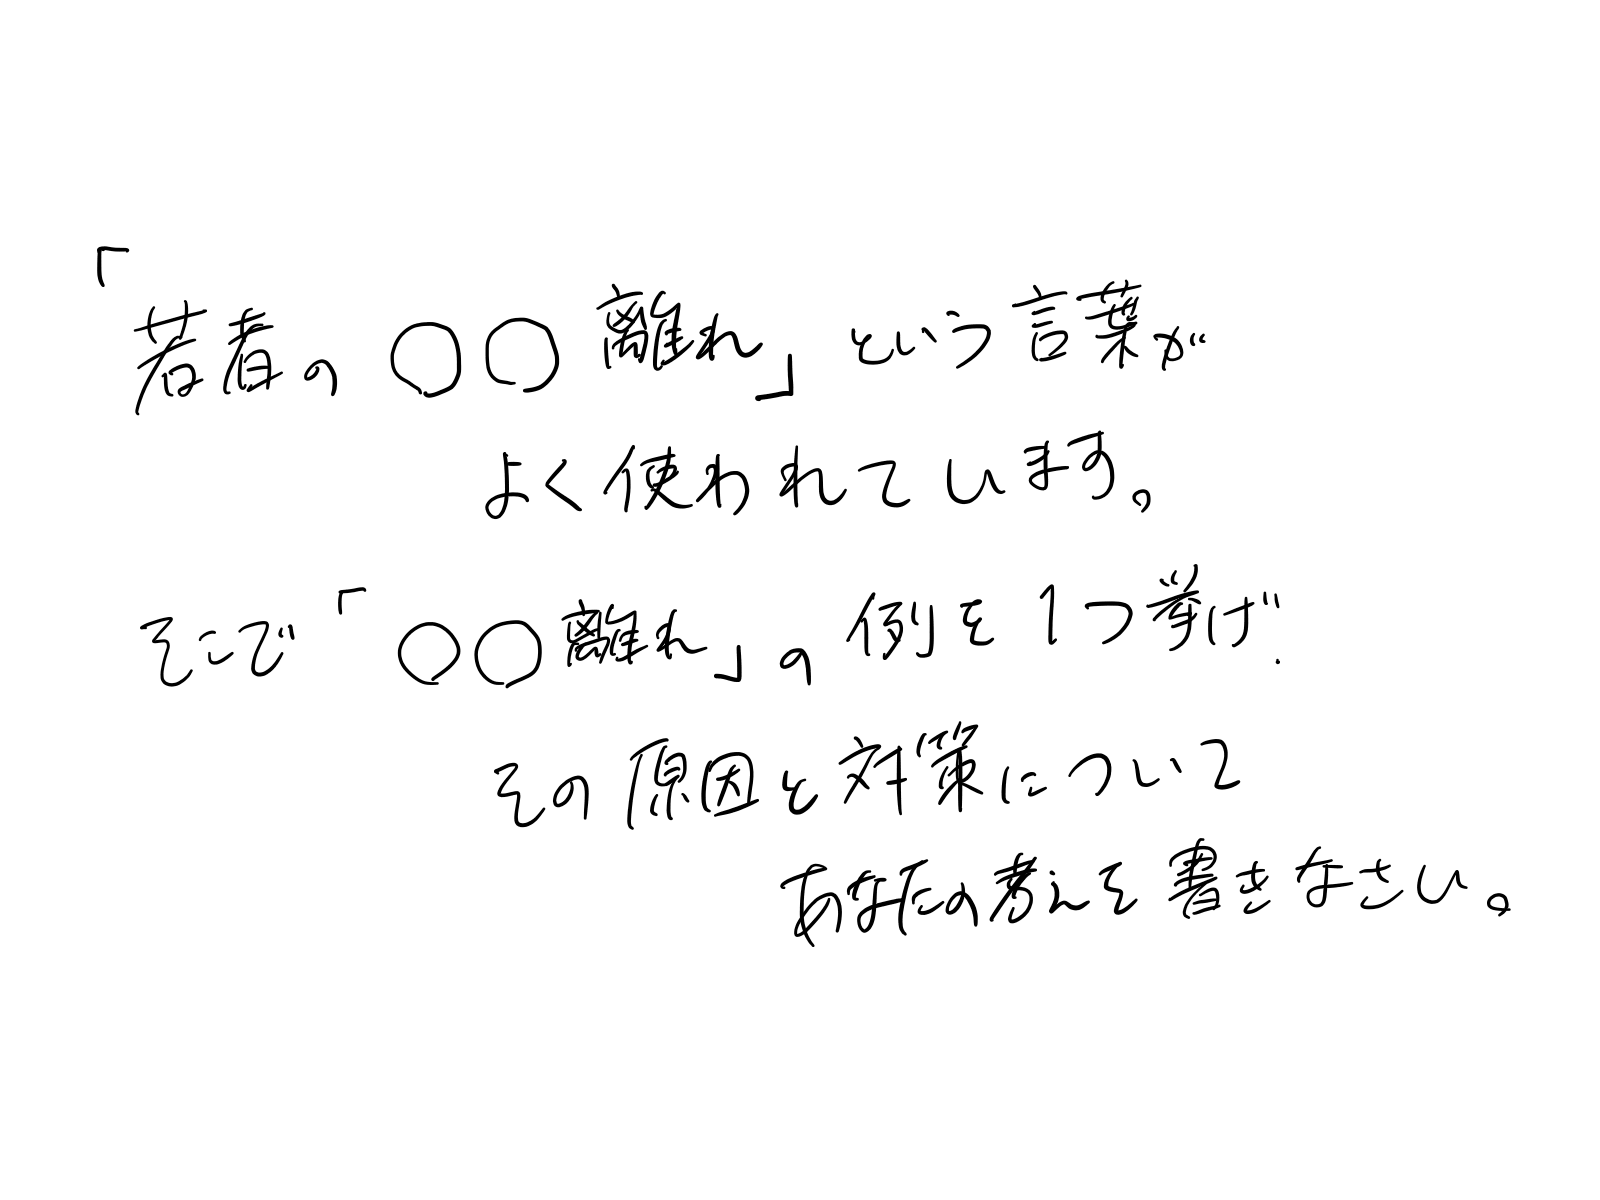 「若者の○○離れ」という言葉が
よく使われています。
そこで「○○離れ」の例を1つ挙げ.
その原因と対策について
あなたの考えを書きなさい。